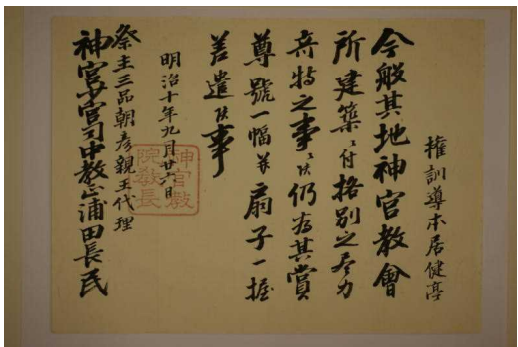 権訓導本居健亭
今般其地神宮教會
所建築ニ付格別之尽力
奇特之事ニ候仍為其賞
尊號一幅并扇子一握
差遣候事
明治十年九月廿六日
祭主三品朝彦親王代理
神宮少宮司中教正浦田長民
神宮教
院教長